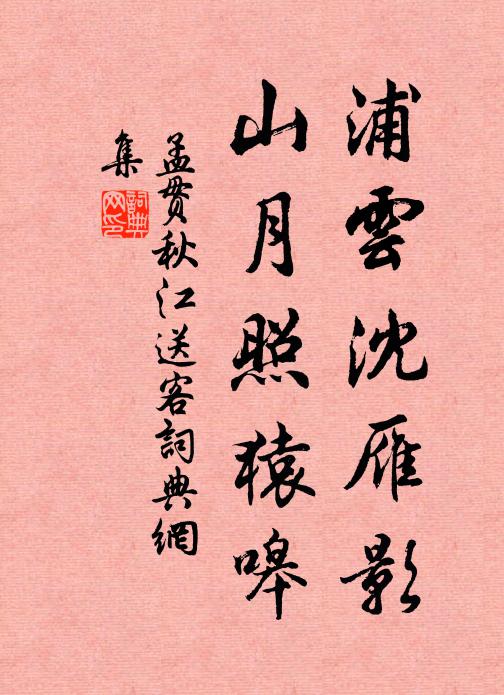 浦雲沈雁影
山月照猿嗥
孟贯秋江送客詞典網
集
詞典
网印